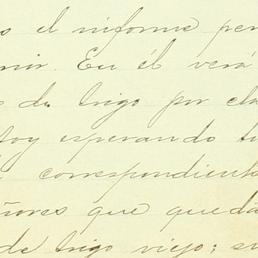 el informe per
En él verá
de trigo por cla
toy esperando tu
correspondient
ñores que queda
de trigo viejo; su